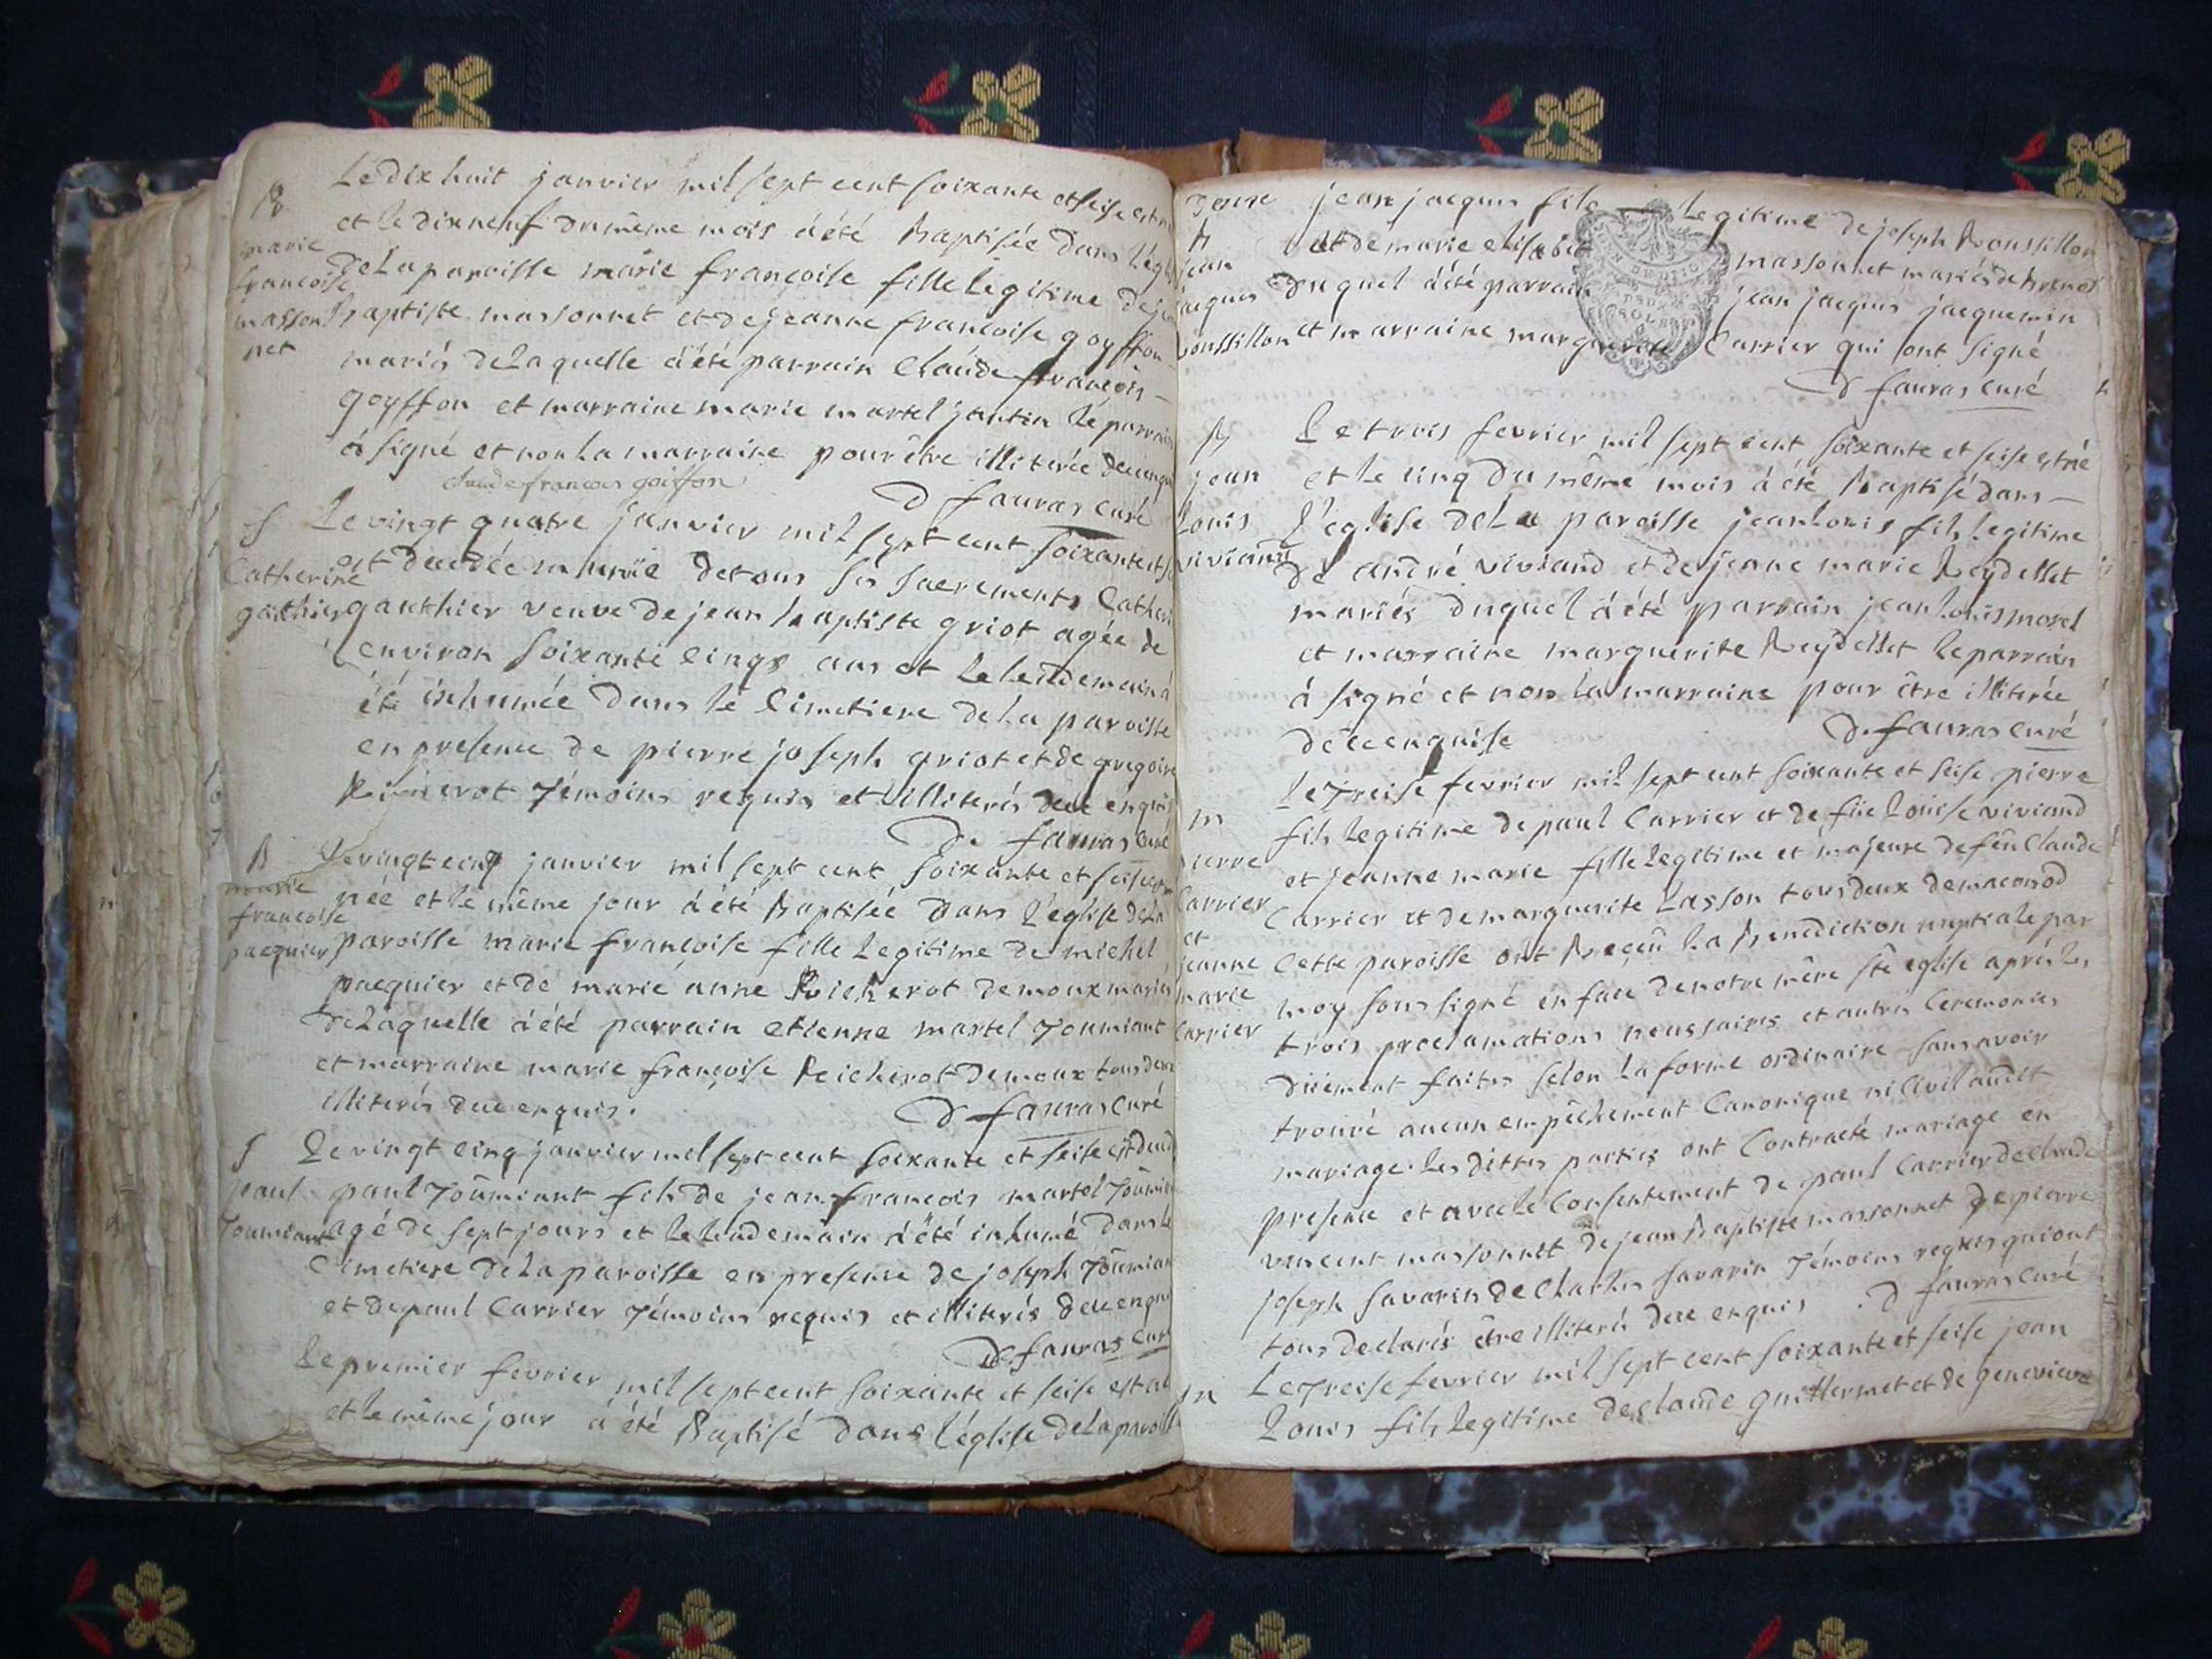 Le dix huit janvier mil sept cent soixante et seise est
B et le dixneuf du même mois á été Baptisée dans l'égl
marie françoise masson net
de La paroisse marie françoise fille legitime de je
Baptiste massonnet et de jeanne françoise goyffon
mariés de Laquelle á été parrain Claude françois
goyffon et marraine marie martel jantin le parrain
á signé et non La marraine pour être illiterée de ce enqu
claude francois goiffon
D fauras curé
S Le vingt quatre janvier mil sept cent soixante et se
Catherine gauthier
est decedée munie de tous ses sacrements Catheri
gauthier veuve de jean baptiste griot agée de
environ soixante cinq ans et le lendemain á
été inhumée dans le Cimetiere de La paroisse
en presence de pierre joseph griot et de gregoire
témoins requis et illiterés de ce enquis
D. fauras curé
B Le vingt cinq janvier mil sept cent soixante et seise est
marie françoise pacquier
née et le même jour á été Baptisée dans l'église de La
paroisse marie françoise fille Legitime de michel
pacquier et de marie anne Reicherot de moux mariés
de Laquelle á été parrain etienne martel Toumiant
et marraine marie françoise Reicherot de moux tous deux
illiterés de ce enquis.
D fauras curé
S Le vingt cinq janvier mil sept cent soixante et seise est deced
paul Toumiant
paul Toumiant fils de jean francois martel Toumian
agé de sept jours et le lendemain á été inhumé dans le
Cimetiere de La paroisse en presence de joseph Toumian
et de paul Carrier témoins requis et illiterés de ce enqui
D. fauras curé
Le premier fevrier mil sept cent soixante et seise est né
et le même jour á été Baptisé dans l'église de La paroisse
jean jacques fils Legitime de joseph Roussillon
B jean jacques Roussillon
et de marie elisabet massonnet mariés de
duquel á été parrain jean jacques jacquemin
et marraine marguerite Carrier qui ont signé
D fauras curé
B jean Louis viviand
Le trois fevrier mil sept cent soixante et seise est né
et le cinq du même mois á été Baptisé dans
l'église de La paroisse jean Louis fils legitime
de andré viviand et de jeanne marie Reydellet
mariés duquel á été parrain jean Louis morel
et marraine marguerite Reydellet le parrain
á signé et non La marraine pour être illiterée
de ce enquise
D. fauras curé
Le treise fevrier mil sept cent soixante et seise pierre
m pierre Carrier et jeanne marie Carrier
fils legitime de paul Carrier et de füe Loüise viviand
et jeanne marie fille Legitime et majeure de feû Claude
Carrier et de marguerite Lasson tous deux de maconod
Cette paroisse ont Reçeû La Benediction nuptiale par
moy soussigné en face de notre mère ste eglise aprés les
trois proclamations necessaires et autres Ceremonies
düement faites selon La forme ordinaire sans avoir
trouvé aucun empêchement Canonique ni Civil audit
mariage. Les dittes parties ont Contracté mariage en
presence et avec le Consentement de paul Carrier de claude
vincent massonnet de jean Baptiste massonnet de pierre
joseph savarin de Charles savarin témoins requis qui ont
tous declarés être illiterés de ce enquis. D fauras curé
m Le treise fevrier mil sept cent soixante et seise jean
Louis fils legitime de claude guillermet et de genevieve